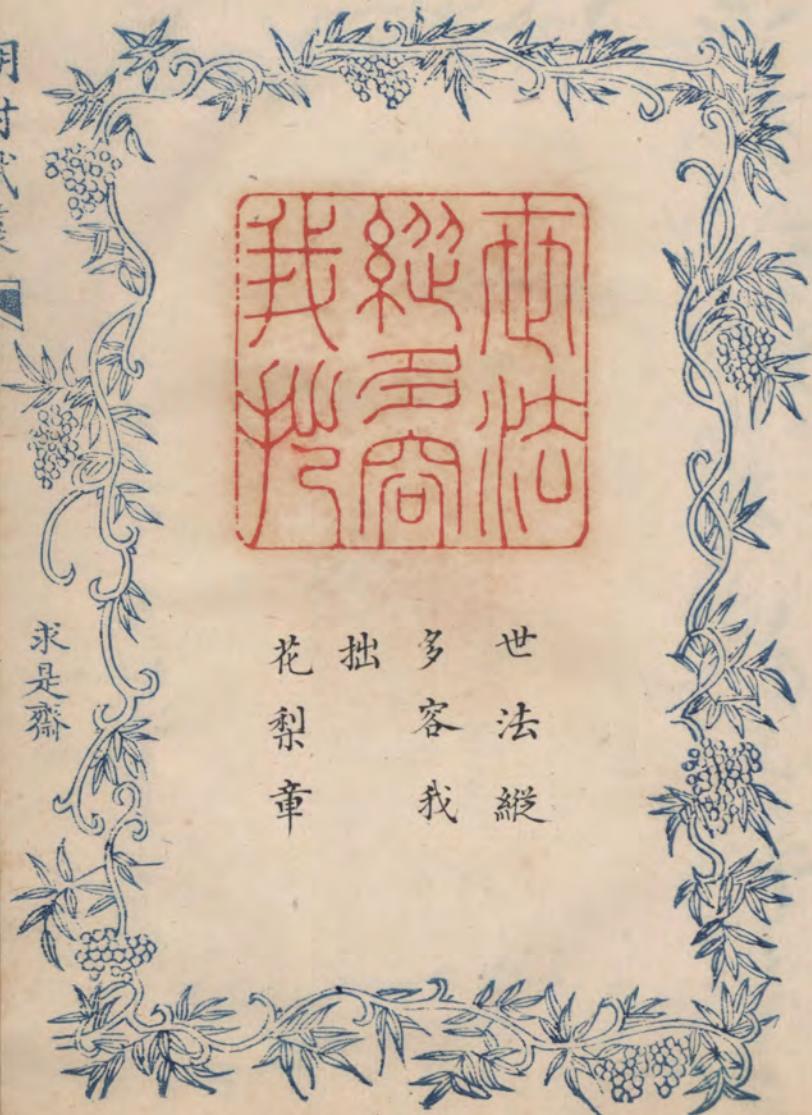 世法
縱多容
我拙
世法縱
多容我
拙
花梨章
求是齋